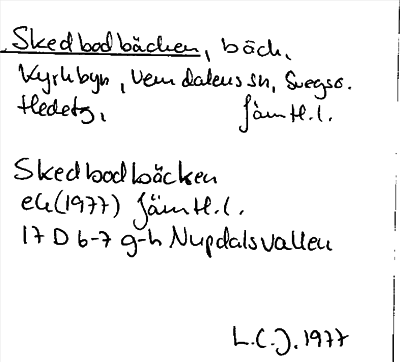 Skedbodbäcken, bäck,
Kyrkbyn, Vemdalens sn, Svegs s.
Hedetg, Jämtl. l.
Skedbodbäcken
ek (1977) Jämtl. l.
17 D 6-7 g-h Nupdalsvallen
L.C.J. 1977